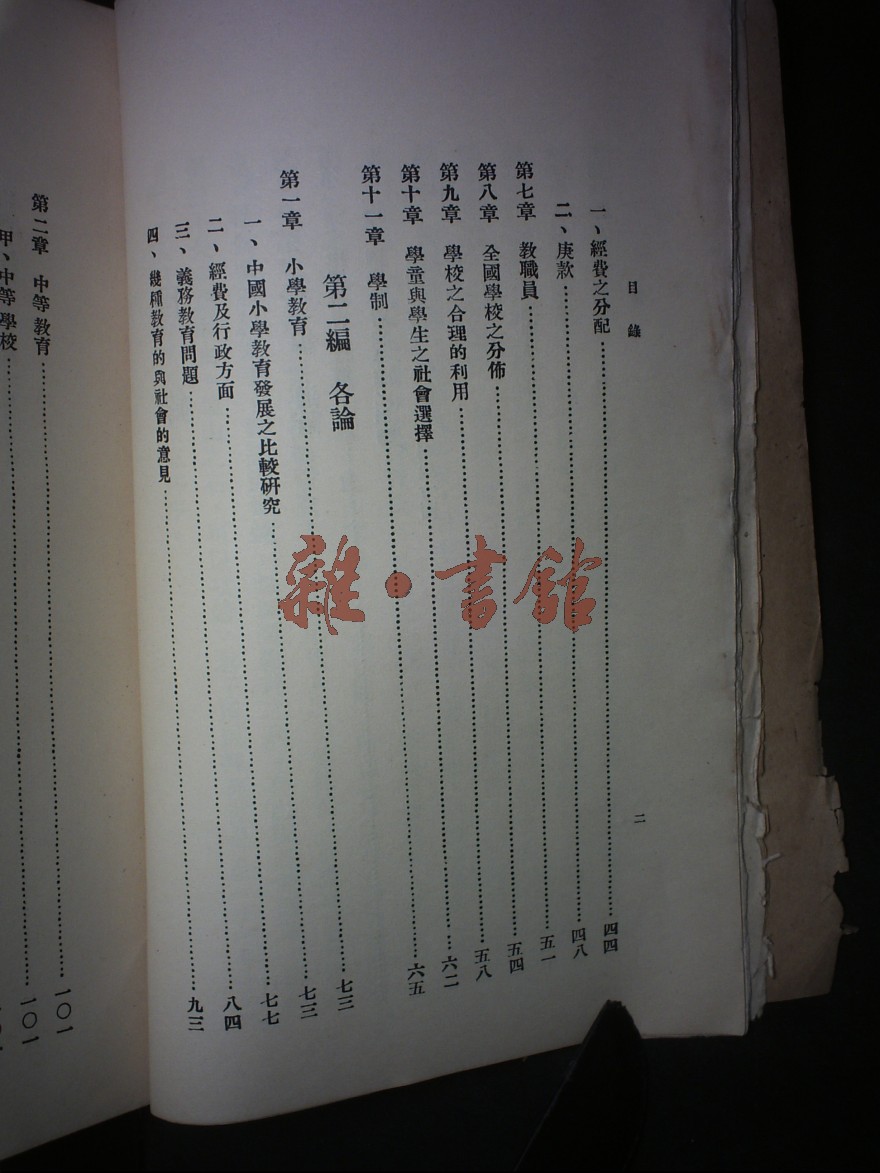 目錄 二
一、經費之分配……………………四四
二、庚款……………………四八
第七章 教職員……………………五一
第八章 全國學校之分佈……………………五四
第九章 學校之合理的利用……………………五八
第十章 學童與學生之社會選擇……………………六二
第十一章 學制……………………六五
第二編 各論
第一章 小學教育……………………七三
一、中國小學教育發展之比較研究……………………七三
二、經費及行政方面……………………七七
三、義務教育問題……………………八四
四、幾種教育的與社會的意見……………………九三
第二章 中等教育……………………一〇一
甲、中等學校……………………一〇一
雜·書館